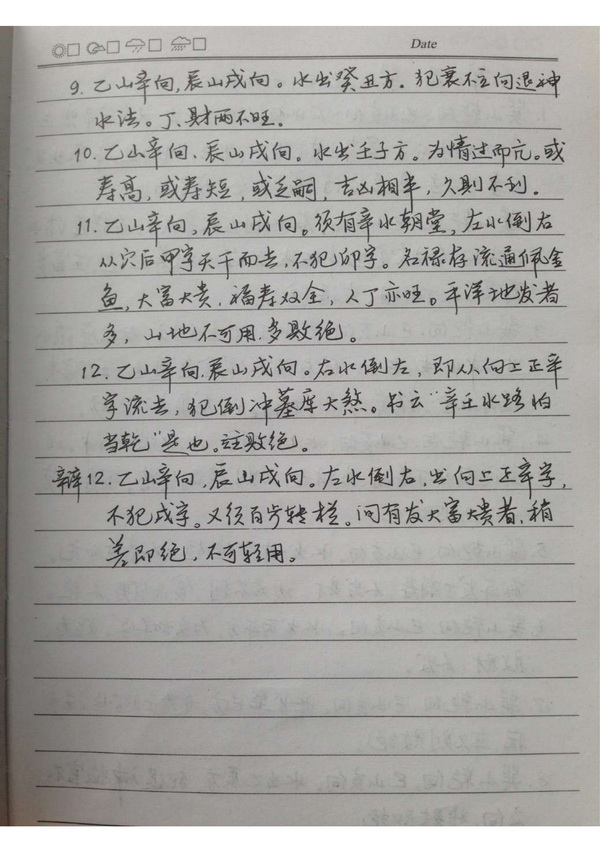 Date
9. 乙山辛向,辰山戌向。水出癸丑方. 犯衰不立向退神
水法。丁、财两不旺.
10. 乙山辛向、辰山戌向。水出壬子方。为情过而亢。或
寿高,或寿短,或乏嗣,吉凶相半,久则不利.
11. 乙山辛向,辰山戌向。须有辛水朝堂,左水倒右
从穴后甲字天干而去,不犯卯字。名禄存流通佩金
鱼,大富大贵,福寿双全,人丁亦旺。平洋地发者
多,山地不可用.多败绝。
12. 乙山辛向.辰山戌向。右水倒左,即从向上正辛
字流去,犯倒冲墓库大煞。书云"辛壬水路怕
当乾"是也.主败绝。
辩12. 乙山辛向,辰山戌向。左水倒右,出向上正辛字,
不犯戌字。又须百步转栏。间有发大富大贵者,稍
差即绝,不可轻用。